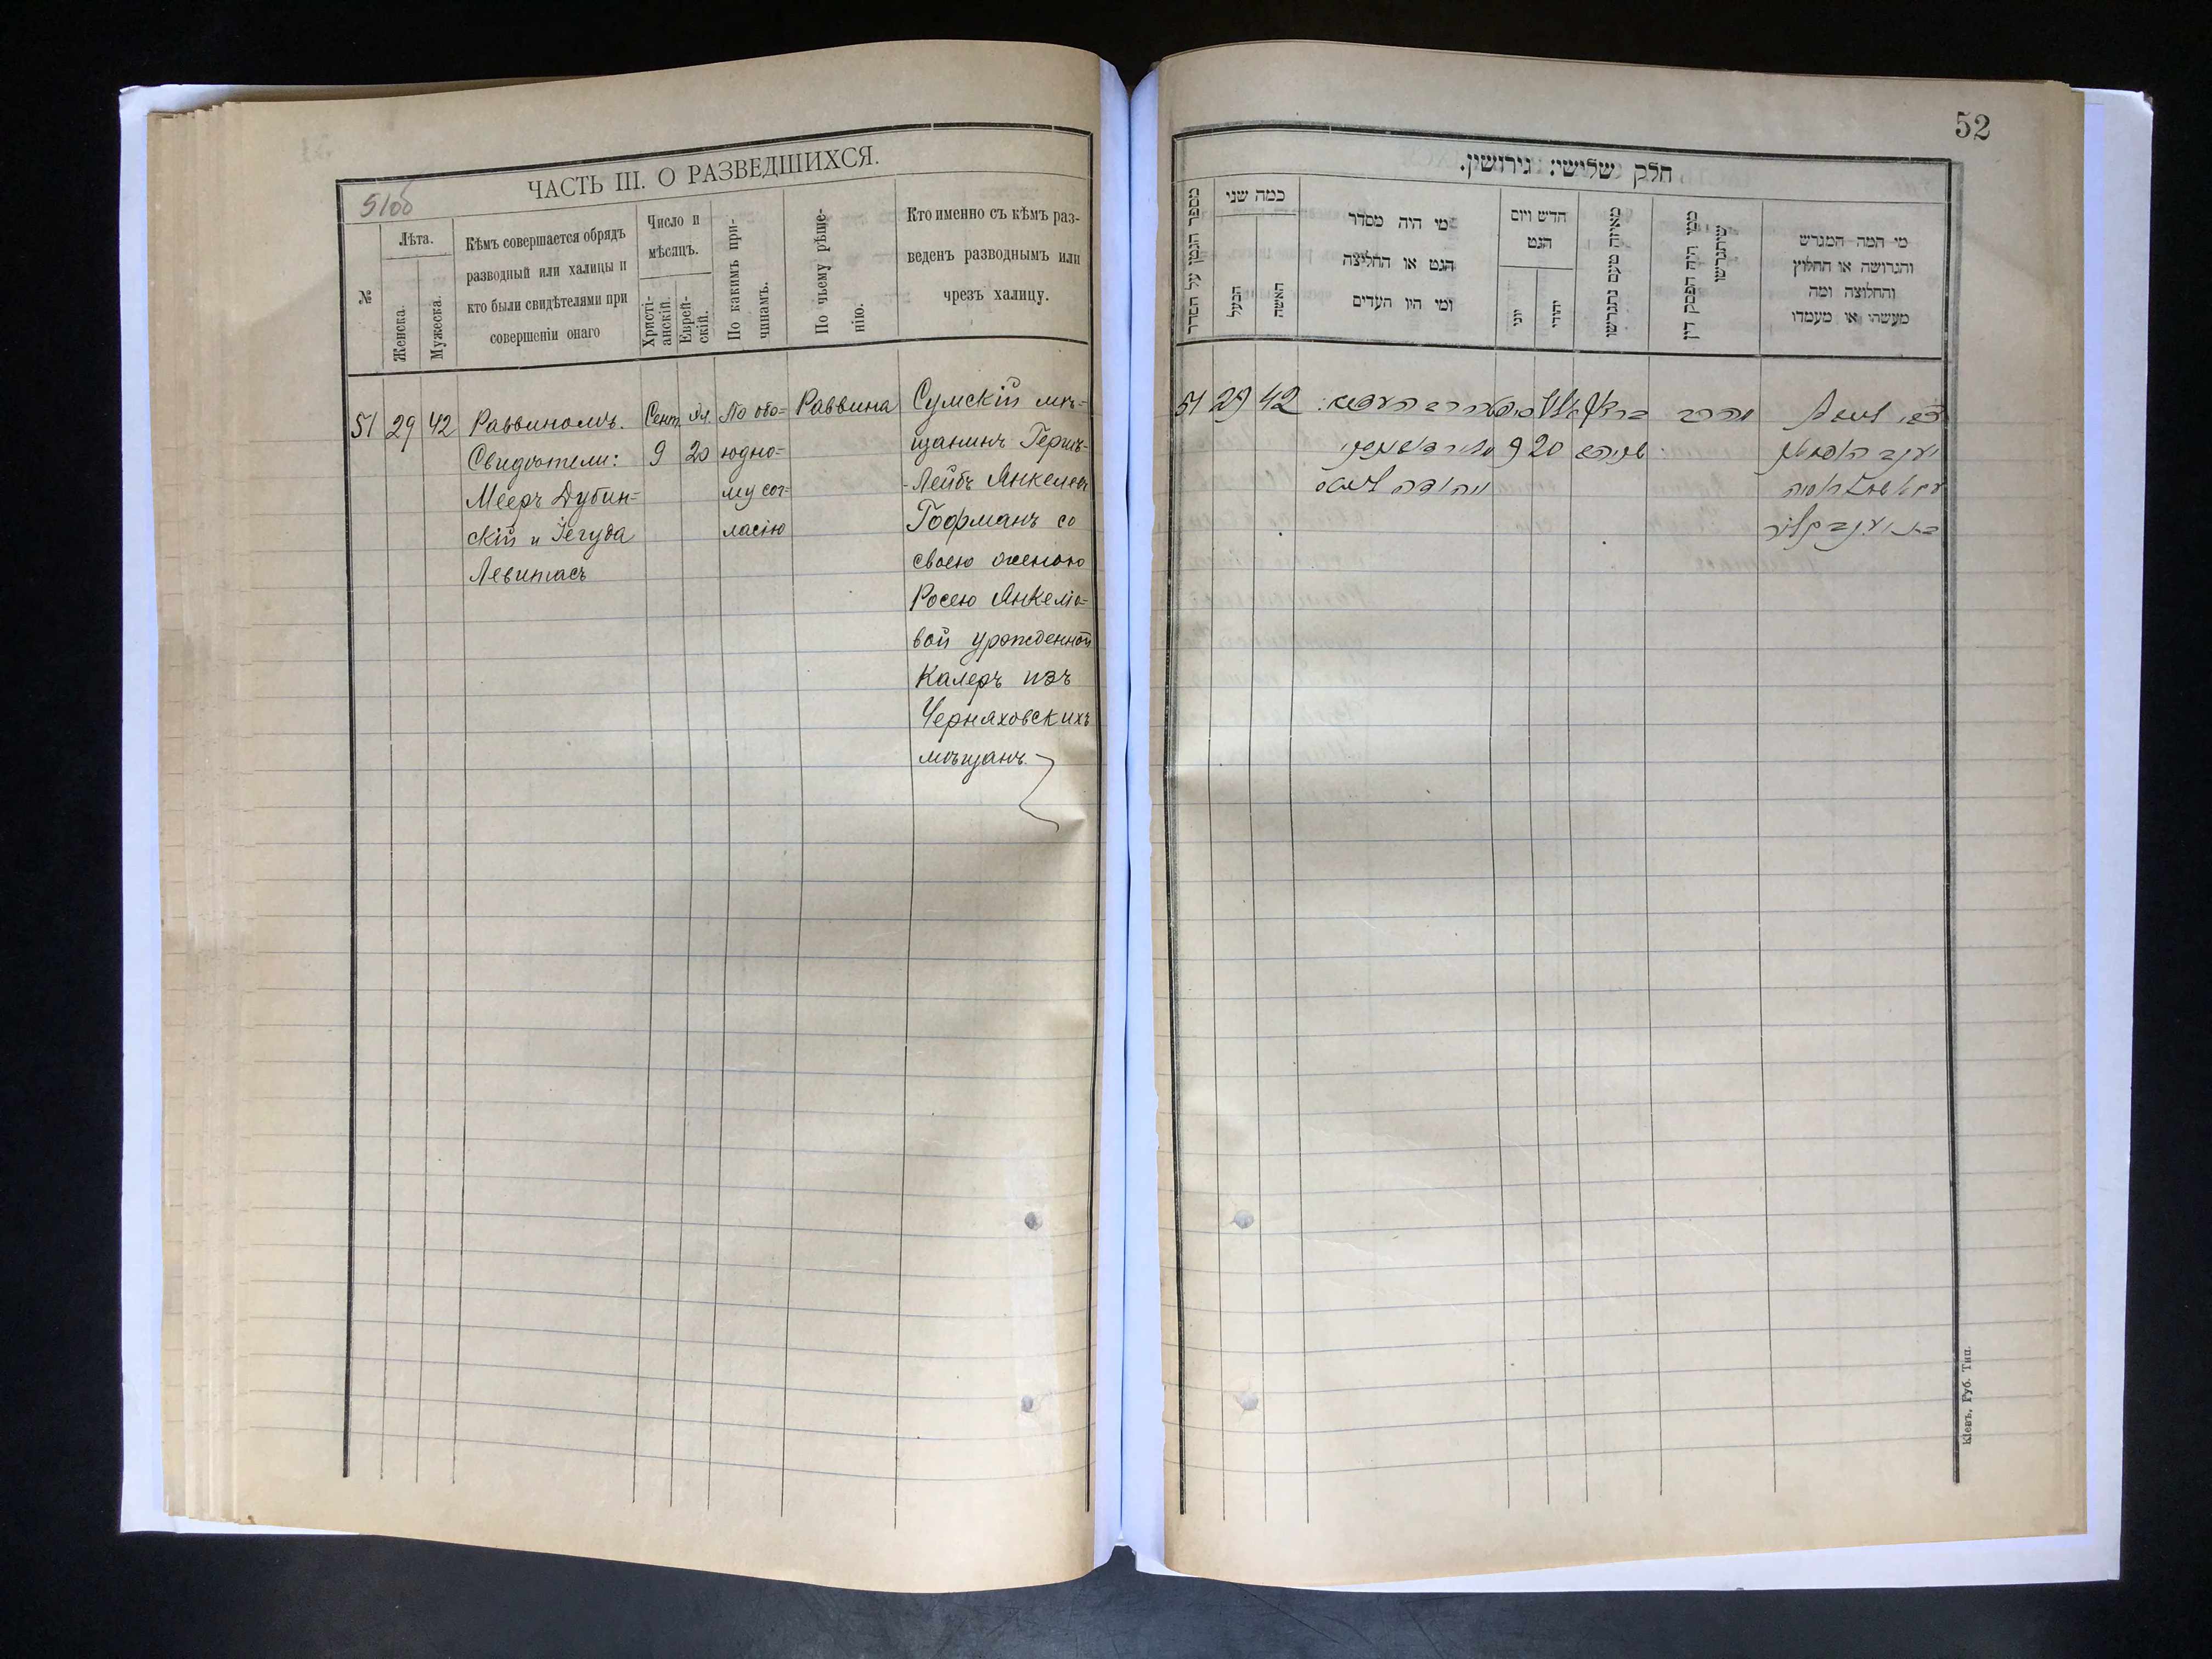 51об
ЧАСТЬ III. О РАЗВЕДШИХСЯ.
№
Лѣта.
Женска.
Мужеска.
Кѣмъ совершается обрядъ
разводный или халицы и
кто были свидѣтелями при
совершеніи онаго
Число и
мѣсяцъ.
Христі-
анскій.
Еврей-
скій.
По какимъ при-
чинамъ.
По чьему рѣше-
нію.
Кто именно съ кѣмъ раз-
веденъ разводнымъ или
чрезъ халицу.
51
29
42
Раввиномъ.
Свидѣтели:
Мееръ Дубин-
скій и Іегуда
Левитасъ
Сент
9
Эл.
20
По обо-
юдно-
му сог-
ласію
Раввина
Сумскій мѣ-
щанинъ Герш-
Лейбъ Янкелев
Гофманъ со
своею женою
Росею Янкеліо-
вой урожденной
Калеръ изъ
Черняховскихъ
мѣщанъ.
52
חלק שלישי: גירושין.
מספר הגטין על הסדר
כמה שני
הבעל
האשה
מי היה מסדר
הגט או החליצה
ומי היו העדים
חדש ויום
הגט
יוני
יהודי
מאיזה טעם נתגרשו
ממי היה הפסק דין
שיתגרשו
מי המה המגרש
והגרושה או החלוץ
והחלוצה ומה
מעשהו או מעמדו
51
29
42
9
20
Кіевъ, Губ. Тип.